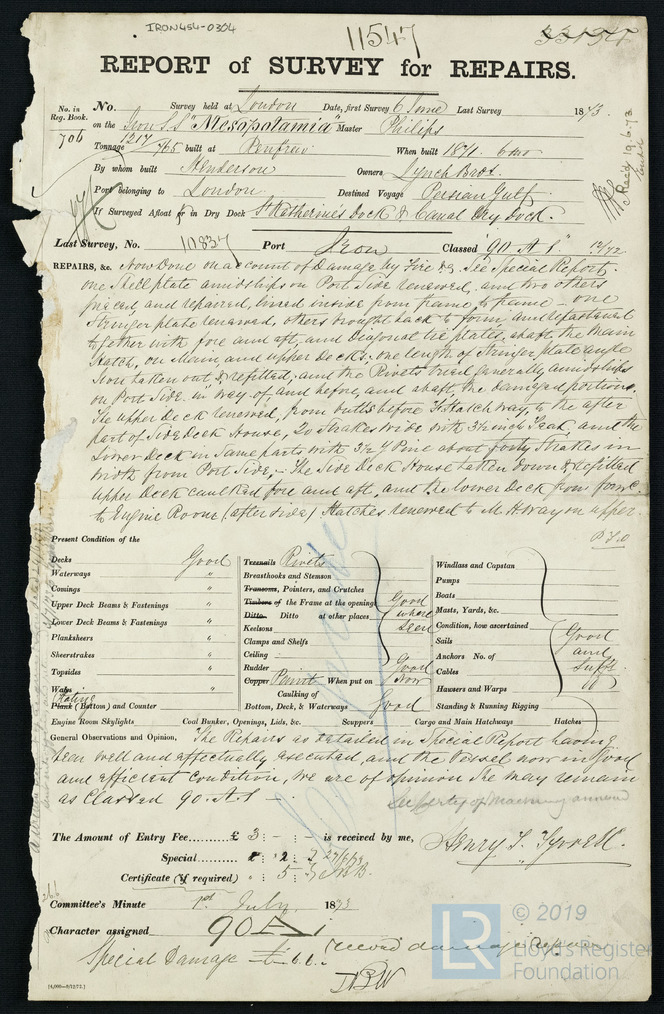 IRON454-0304
11547
REPORT of SURVEY for REPAIRS.
No. in Reg. Book. 706
No. Survey held at London Date, first Survey 6 June Last Survey 1873.
on the Iron S.S "Mesopotamia" Master Philips
Tonnage 1217/765 built at Renfrew When built 1871. 6mo
By whom built Henderson Owners Lynch Bros.
Port belonging to London Destined Voyage Persian Gulf
If Surveyed Afloat or in Dry Dock St Katherines Dock & Canal Dry Dock.
Recd 19.6.73
Last Survey, No. 10837 Port Iron Classed "90 A 1" 12/72
REPAIRS, &c. Now Done on account of Damage by Fire &c. See Special Report.
one Shell plate amidships on Port Side renewed, and two others
pieced, and repaired, lined inside from frame to frame - one
Stringer plate renewed, others brought back to form and refastened
together with fore and aft, and Diagonal tie plates, abaft the Main
Hatch, on Main, and upper Decks. one length of Stringer plate angle
Iron taken out & refitted, and the Rivets tried generally amidships
on Port Side in way of, and before, and abaft the damaged portions.
The upper deck renewed, from butts before Hatchway, to the after
part of Side Deck House, 20 Strakes wide with 3½ inch Teak, and the
Lower Deck in Same parts with 3½ Y Pine about forty Strakes in
width from Port Side, - The Side Deck House taken down & refitted
upper Deck caulked fore and aft, and the lower Deck from forwd.
to Engine Room (after side) Hatches renewed to M. Hway on upper
P.T.O
Present Condition of the
Decks Good
Waterways "
Comings "
Upper Deck Beams & Fastenings "
Lower Deck Beams & Fastenings "
Planksheers "
Sheerstrakes "
Topsides "
Wales "
Plank (Bottom) and Counter
Treenails Rivets
Breasthooks and Stemson
Transoms, Pointers, and Crutches
Timbers of the Frame at the openings
Ditto Ditto at other places
Keelsons
Clamps and Shelfs
Ceiling
Good where seen
Rudder Good
Copper Paint When put on Now
Caulking of
Bottom, Deck, & Waterways Good
Windlass and Capstan
Pumps
Boats
Masts, Yards, &c.
Condition, how ascertained
Sails
Anchors No. of
Cables
Hawsers and Warps
Standing & Running Rigging
Good and Sufft
Engine Room Skylights Coal Bunker, Openings, Lids, &c. Scuppers Cargo and Main Hatchways Hatches
General Observations and Opinion, The Repairs as detailed in Special Report having
been well and effectually executed, and the Vessel now in Good
and efficient Condition, We are of opinion She may remain
as Classed 90. A. 1 -
The Amount of Entry Fee......... £ 3 : - : - is received by me, Henry J. Tyrrell.
Special ......
Certificate (if required) " : 5 :
Committee's Minute 1st July 1873
Character assigned 90 A 1
record damage repairs
Special Damage
© 2019
LR
Lloyd's Register
Foundation